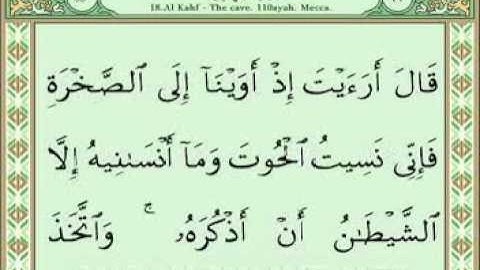 18.Al Kahf - The cave. 110ayah. Mecca.
قَالَ أَرَءَيْتَ إِذْ أَوَيْنَآ إِلَى ٱلصَّخْرَةِ
فَإِنِّى نَسِيتُ ٱلْحُوتَ وَمَآ أَنْسَىٰنِيهُ إِلَّا
ٱلشَّيْطَٰنُ أَنْ أَذْكُرَهُۥ ۚ وَٱتَّخَذَ